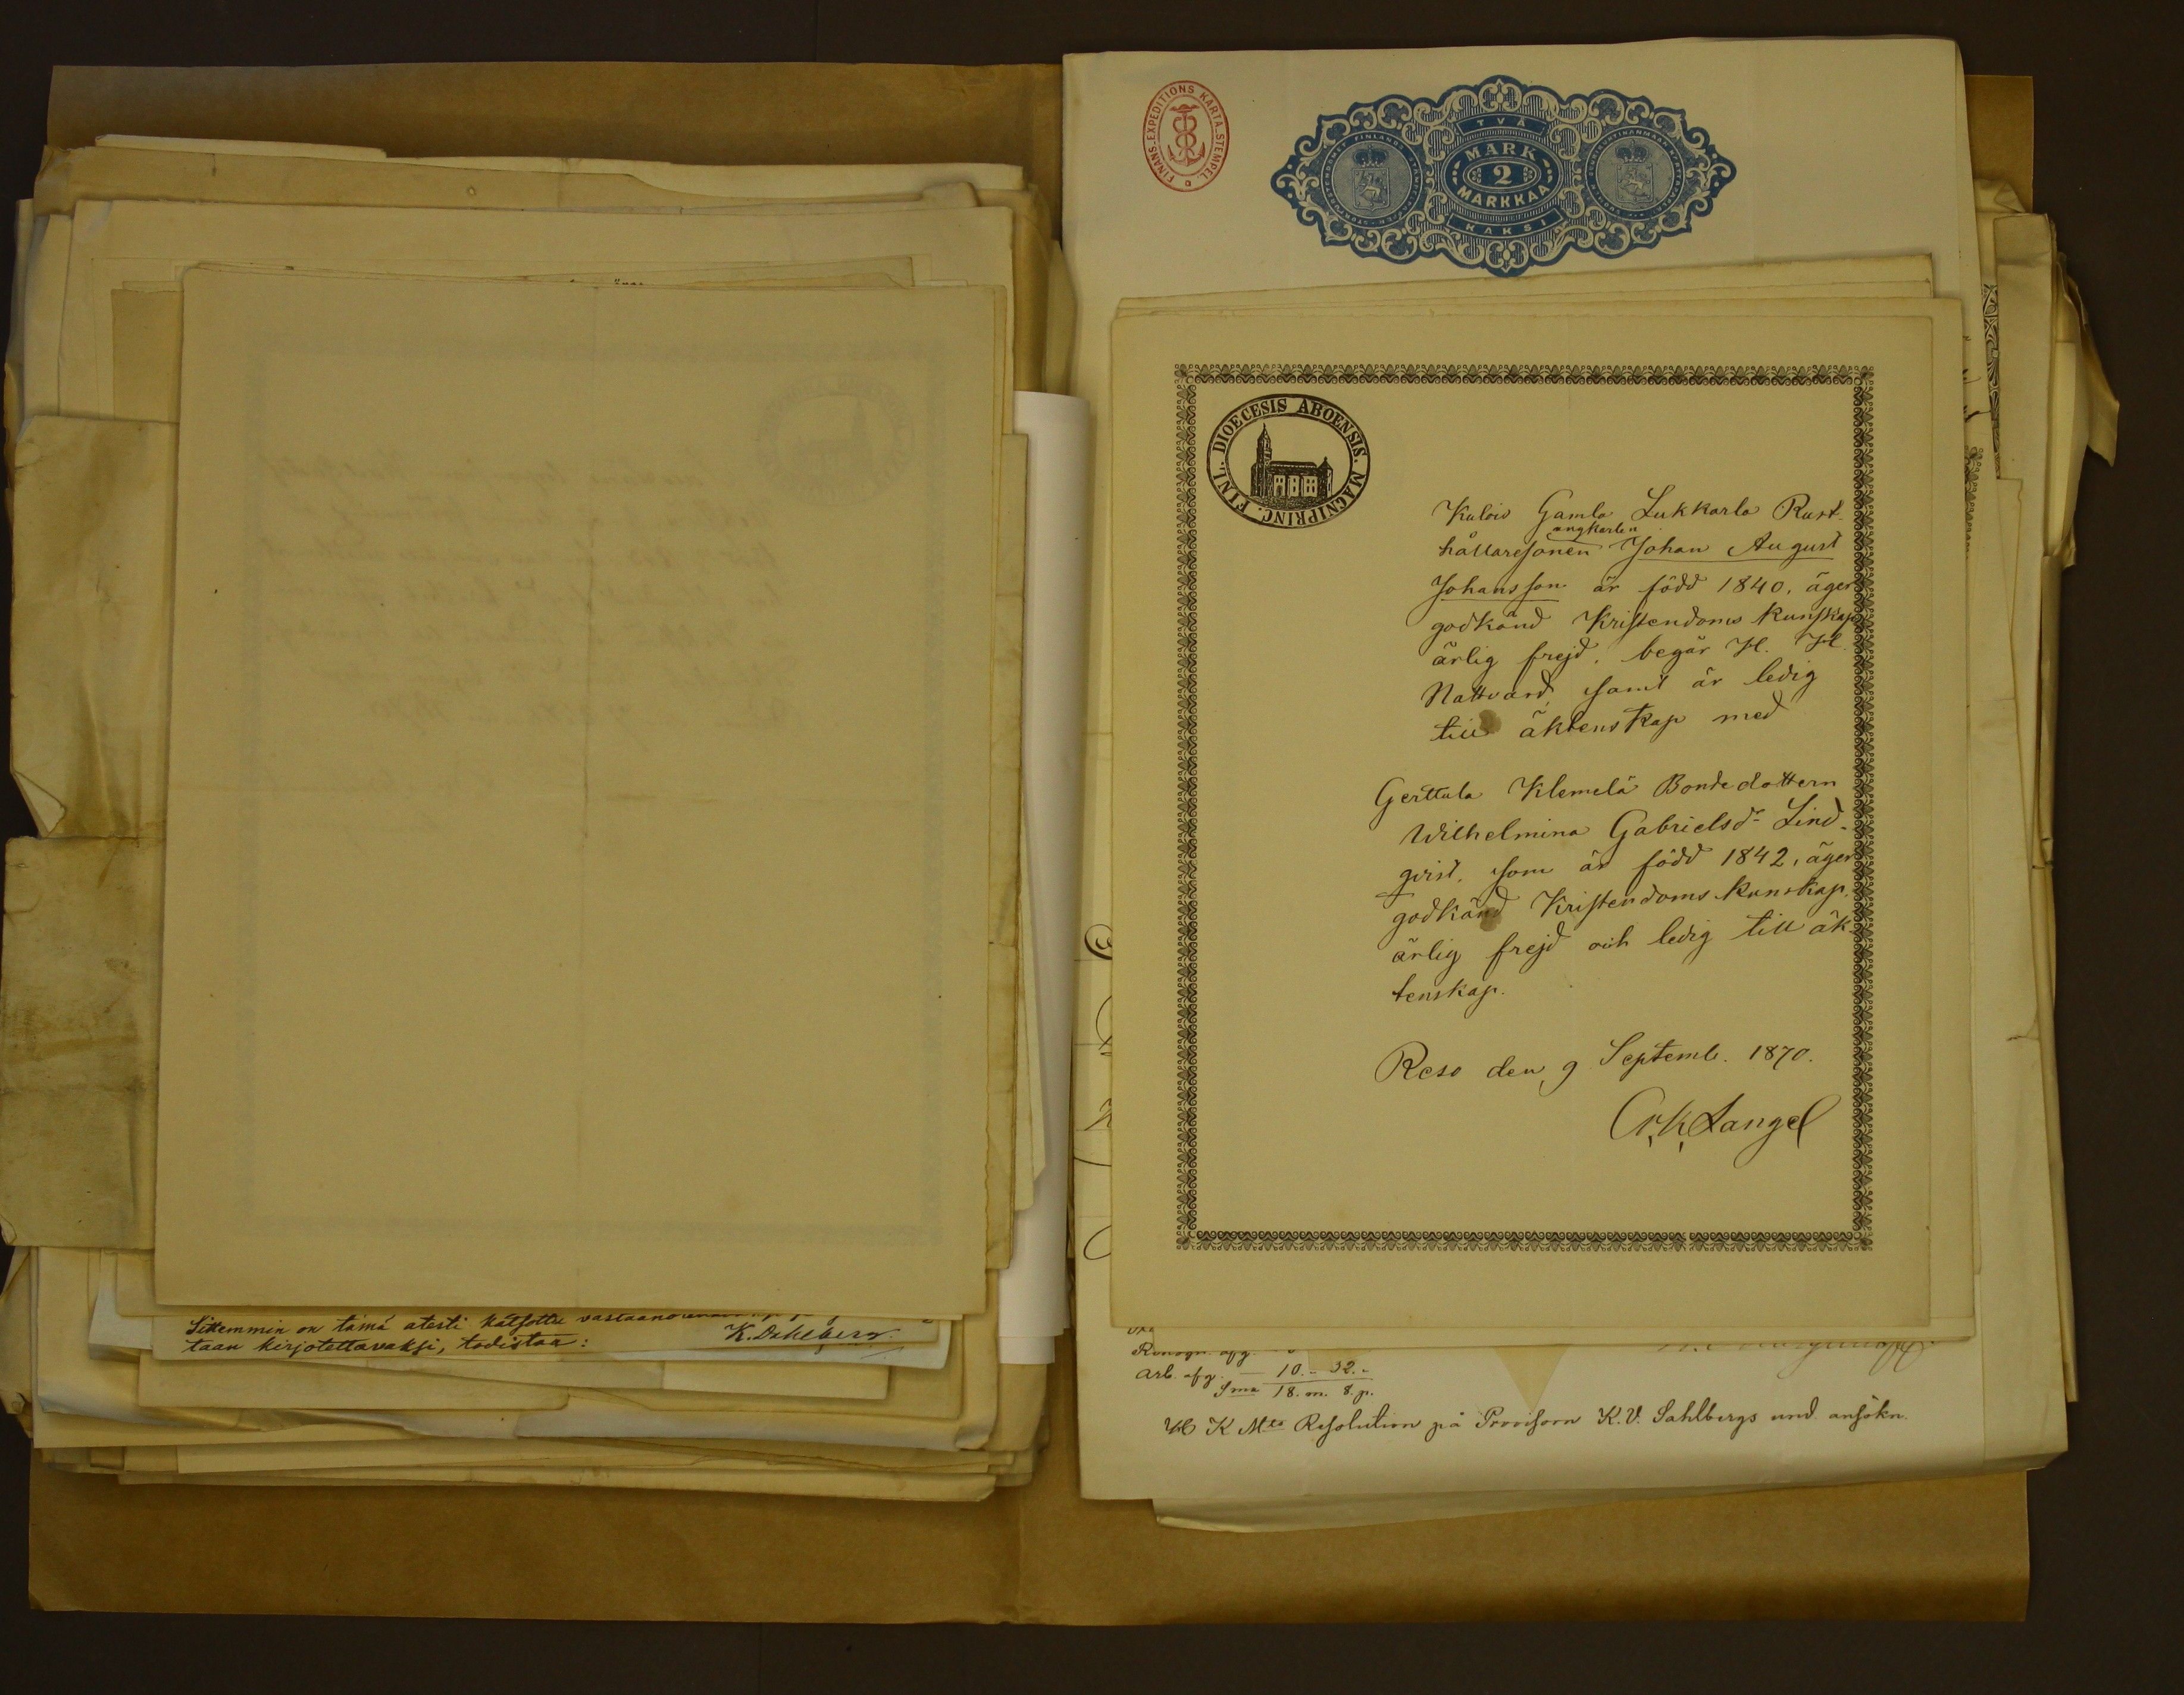 Sittemmin on tämä atesti katsottu
taan kirjotettavaksi, todistaa: K. Dahlberg.
FINANS-EXPEDITIONS KARTA-STEMPEL.
TVÅ
MARK
2
MARKKAA
KAKSI
DIOECESIS ABOENSIS. MAGNIPRINC. FINL.
Kulois Gamla Lukkarla Rust-
ungkarlen
hållaresonen Johan August
Johansson är född 1840, äger
godkänd Kristendoms kunskap
ärlig frejd, begår H. H.
Nattvard, samt är ledig
till äktenskap med
Gerttula Klemelä Bondedottern
Wilhelmina Gabrielsdr Lind-
qvist, som är född 1842, äger
godkänd Kristendoms kunskap,
ärlig frejd och ledig till äk-
tenskap.
Reso den 9 Septemb. 1870.
Langel
Arb. afg. 10. - 32. -
Sma 18. m. 8. p.
K Mts Resolution på Provisorn K. V. Sahlbergs und. ansökn.